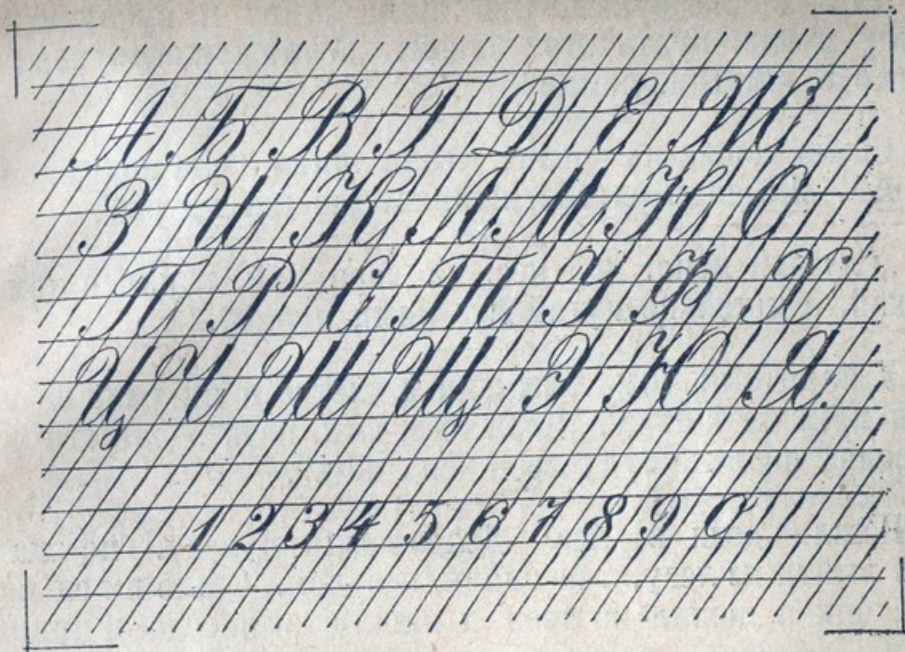 А Б В Г Д Е Ж
З И К Л М Н О
П Р С Т У Ф Х
Ц Ч Ш Щ Э Ю Я.
1 2 3 4 5 6 7 8 9 0.